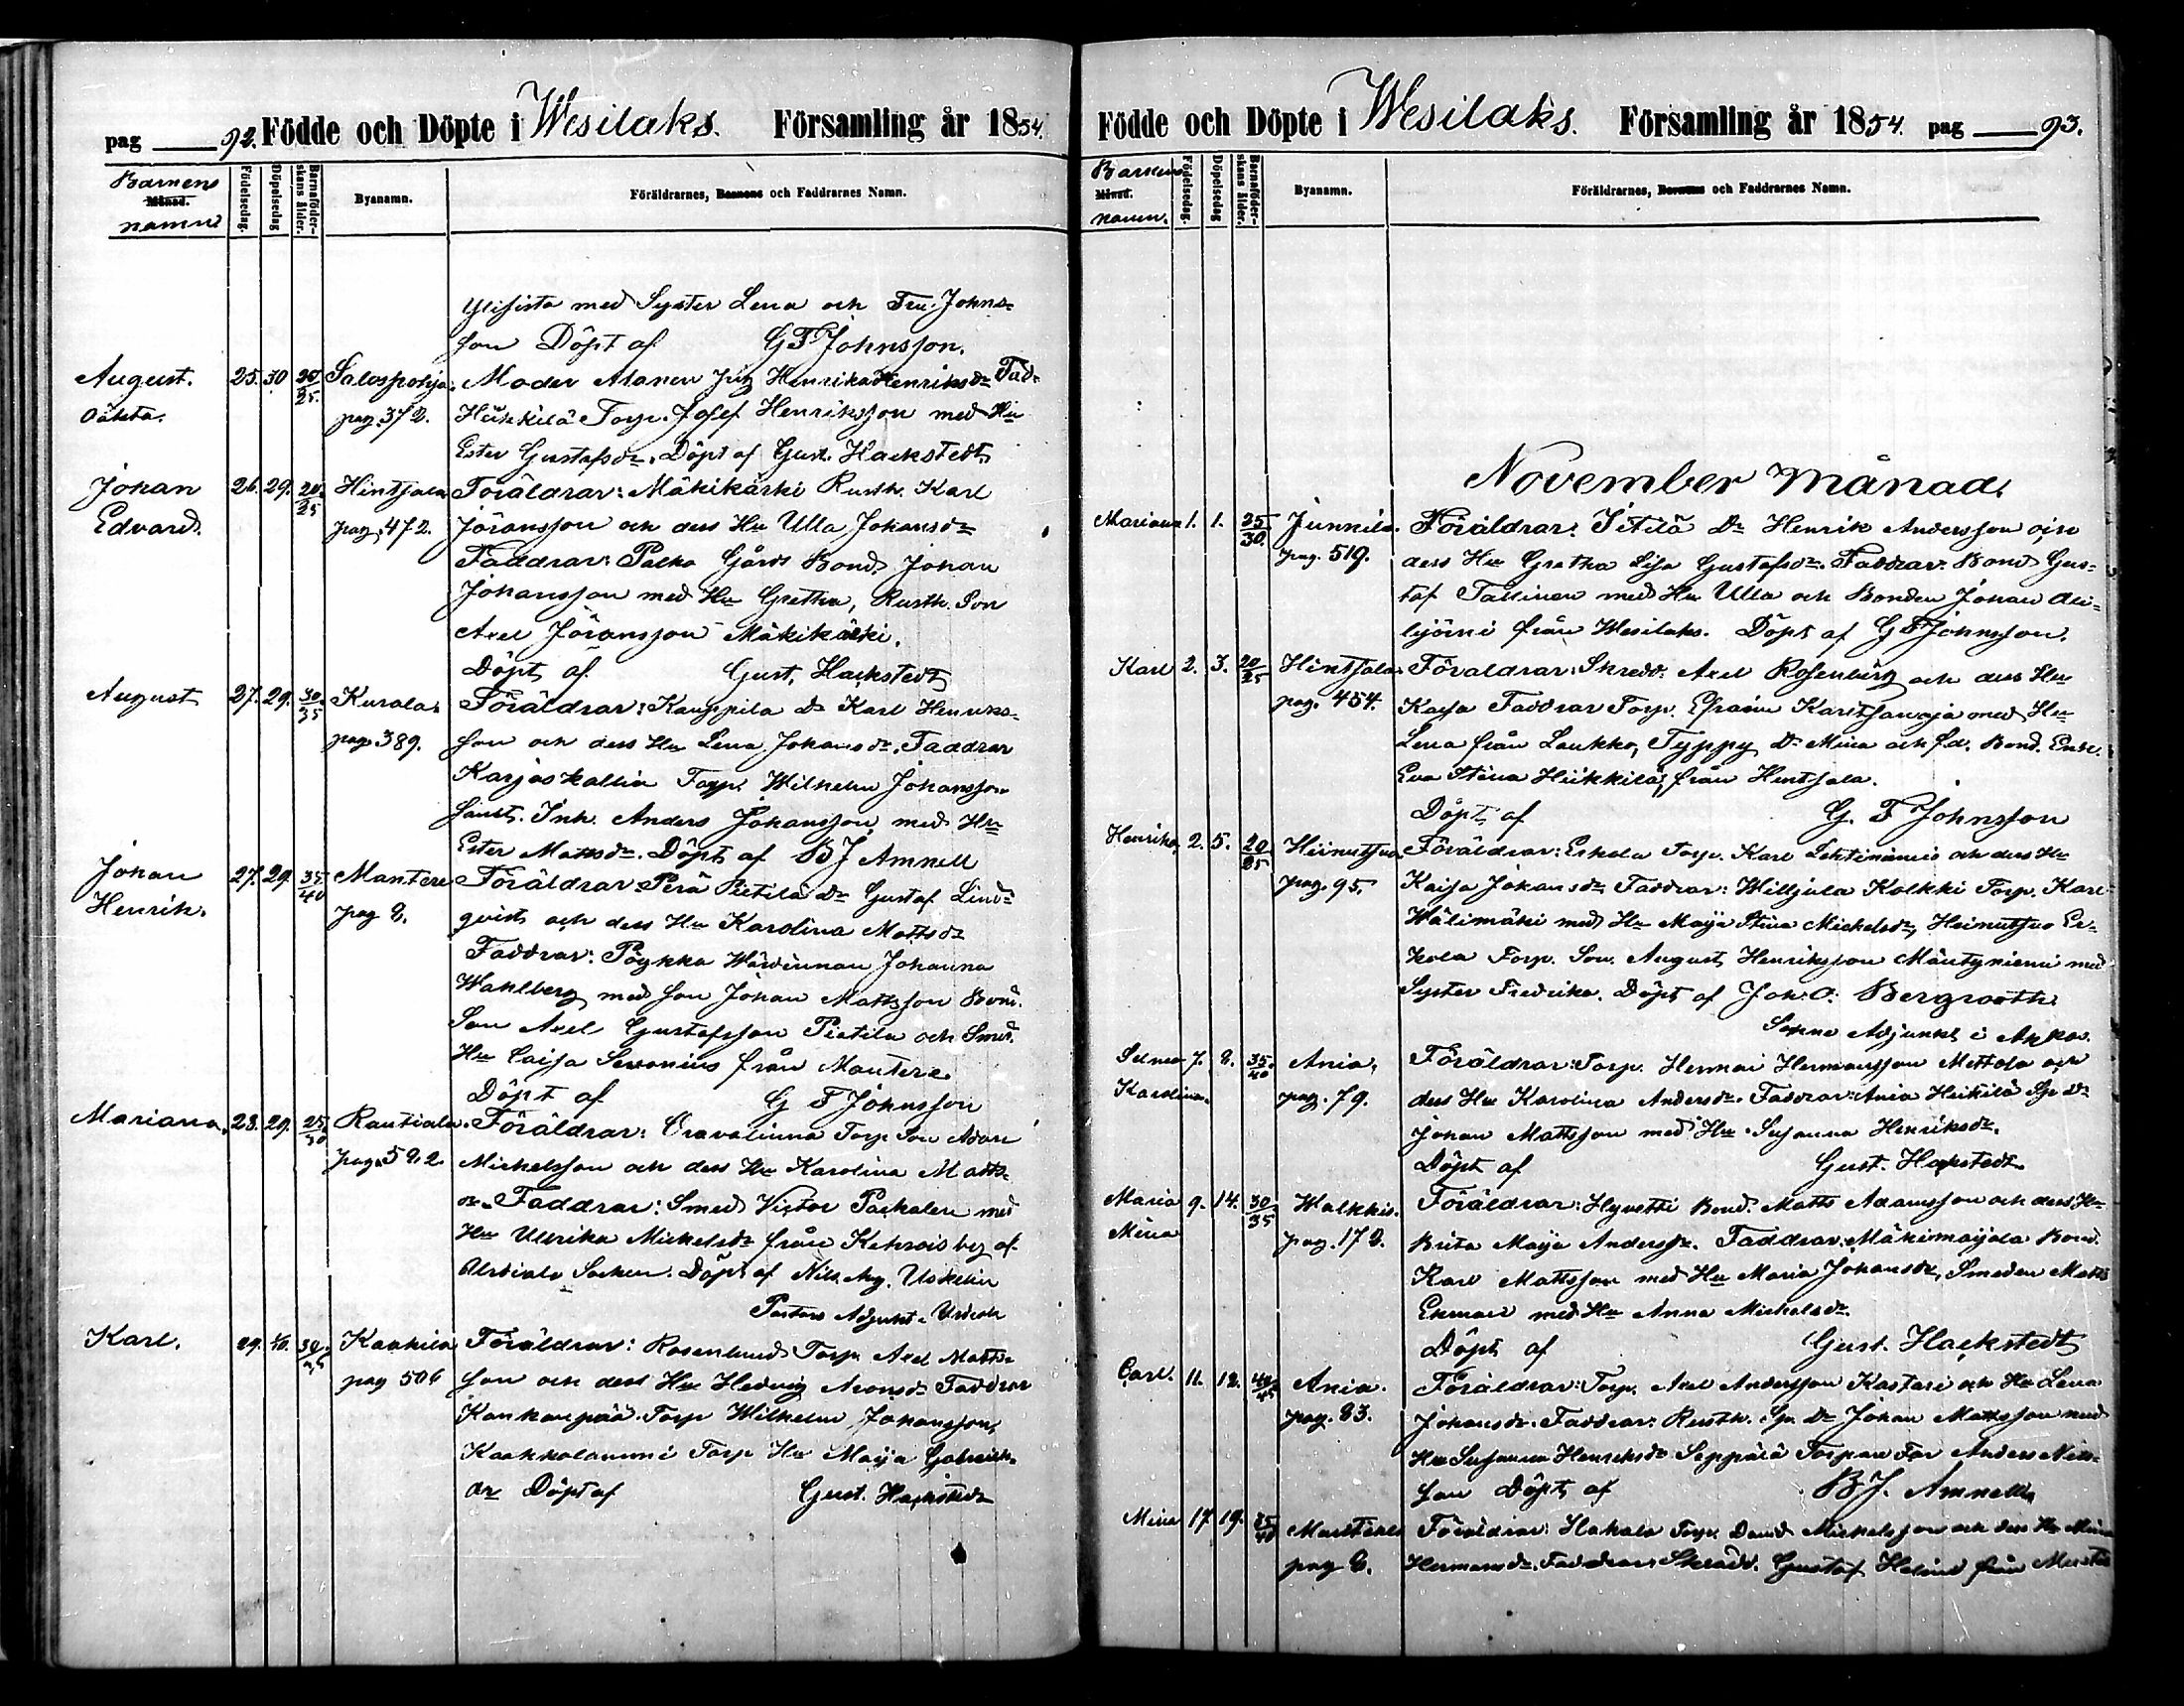 pag 92. Födde och Döpte i Wesilaks. Församling år 1854.
Barnens
Månad.
namn
Födelsedag.
Döpelsedag
Barnaföderskans ålder.
Byanamn.
Föräldrarnes, Barnens och Faddrarnes Namn.
med Syster Lena och Johns-
son Döpt af G F Johnsson.
August. 25. 30 20/25. Salospohja. Moder Alanen Henrika Henriksdr Fad-
oäkta. pag. 372. Heikkilä Torp. Josef Henriksson med Hu
Ester Gustafsdr. Döpt af Gust. Hackstedt
Johan 26. 29. 20/25 Hinsala Föräldrar: Mäkikärki Rusth. Karl
Edvard. pag. 472. Göransson och dess Hu Ulla Johansdr
Faddrar: Palko Gårds Bond. Johan
Johansson med Hu Gretha, Rusth. Son
Axel Göransson Mäkikärki.
Döpt af Gust. Hackstedt
August 27. 29. 30/35 Kurala. Föräldrar: Kauppila Dr Karl Henriks-
pag. 389. son och dess Hu Lena Johansdr. Faddrar
Karjaskallia Torp. Wilhelm Johansson
samt. Inh. Anders Johansson med Hu
Ester Mattsdr. Döpt af B J Amnell
Johan 27. 29. 35/40 Mantere Föräldrar: Perä Pietilä Dr Gustaf Lind-
Henrik. pag 8. qvist och dess Hu Karolina Mattsdr
Faddrar: Pöykkä Wärdinnan Johanna
Wahlberg med son Johan Mattsson Bond.
Son Axel Gustafsson Pietilä och Smed.
Hu Caisa Sevonius från Mantere.
Döpt af G F Johnsson
Mariana. 28. 29. 25/30 Rautiala. Föräldrar: Oravalinna Torp. Son Adam
pag. 582. Michelsson och dess Hu Karolina Matts-
dr. Faddrar: Smed Victor Packalen med
Hu Ulrika Michelsdr från Kehrois by af
Urdiala Socken. Döpt af Nils Aug. Uskelin
Pastors Adjunkt i Urdiala
Karl. 29. Kaakila Föräldrar: Rosenlund Torp. Axel Matts-
pag 506 son och dess Hu Hedvig Aronsdr Faddrar
Kankaanpää Torp Wilhelm Johansson,
Kaakkolammi Torp Hu Maija Gabriels-
dr Döpt af Gust. Hackstedt
Födde och Döpte i Wesilaks. Församling år 1854. pag 93.
Barnens
Månad.
namn.
Födelsedag.
Döpelsedag
Barnaföderskans ålder.
Byanamn.
Föräldrarnes, Barnens och Faddrarnes Namn.
November Månad.
Mariana 1. 1. 25/30. Junnila. Föräldrar: Dr Henrik Andersson och
pag. 519. dess Hu Gretha Lisa Gustafsdr. Faddrar: Bond Gus-
taf Tallinen med Hu Ulla och Bonden Johan Ali-
från Wesilaks. Döpt af G F Johnsson.
Karl 2. 3. 20/25 Hinsala. Föräldrar: Skredd. Axel Rosenberg och dess Hu
pag. 454. Kajsa Faddrar Torp. Efraim med Hu
Lena från Laukko, Typpy Dr Mina och f.d. Bond. Enk.
Eva Stina Heikkilä, från Hinsala.
Döpt af G. F Johnsson
Henrika 2. 5. 20/25 Heinusuo Föräldrar: Erkola Torp. Karl Lehtimäki och dess Hu
pag. 95. Kaisa Johansdr Faddrar: Kolkki Torp. Karl
Wälimäki med Hu Maija Stina Michelsdr, Heinusuo Er-
kola Torp. Son. August Henriksson Mäntyniemi med
Syster Fredrika. Döpt af Joh. O. Bergrooth
Sokne Adjunkt i Akkas.
Selma 7. 8. 35/40 Ania. Föräldrar: Torp. Herman Hermansson Mettola och
Karolina. pag. 79. dess Hu Karolina Andersdr. Faddrar: Ania Heikilä Sp. Dr
Johan Mattsson med Hu Susanna Henriksdr.
Döpt af Gust. Hackstedt.
Maria 9. 14. 30/35 Walkkis. Föräldrar: Hyvetti Bond. Matts Adamsson och dess Hu
Mina pag. 178. Brita Maija Andersdr. Faddrar: Mäkimaijala Bond.
Karl Mattsson med Hu Maria Johansdr, Smeden Matts
Ekman med Hu Anna Michelsdr.
Döpt af Gust. Hackstedt
Carl. 11. 12. 40/45 Ania. Föräldrar: Torp. Axel Andersson Kastari och Hu Lena
pag. 83. Johansdr. Faddrar: Rusth. Sp. Dr Johan Mattsson med
Hu Susanna Henriksdr Seppälä Torpare Far Anders Nils-
son Döpt af B J. Amnell
Mina 17. 19. 35/40 Mantere Föräldrar: Hakala Torp. David Michelsson och dess Hu Mina
pag 8. Hermansdr. Faddrar: Skrädd. Gustaf Helind från